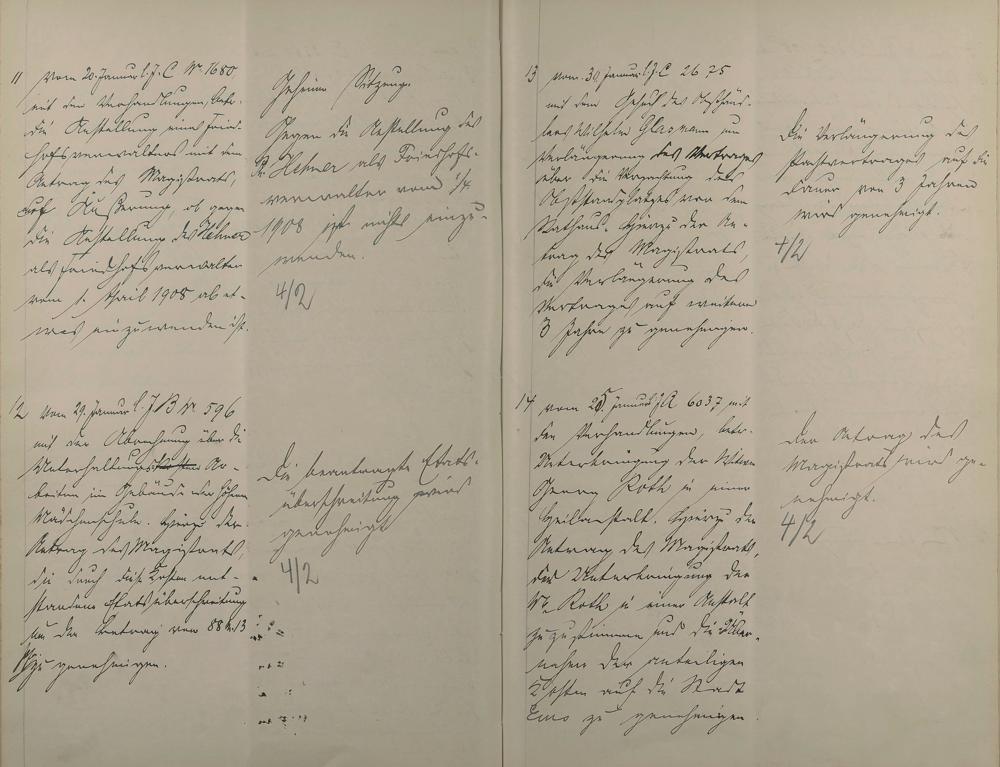 11 Vom 20. Januar l. J. C Nr. 1680
mit den Verhandlungen, betr.
die Anstellung eines Fried-
hofsverwalters mit dem
Antrag des Magistrats,
auf Äußerung, ob gegen
die Anstellung des Hehner
als Friedhofsverwalter
vom 1. April 1908 ab et-
was einzuwenden ist.
Geheime Sitzung.
Gegen die Anstellung des
Hehner als Friedhofs-
verwalter vom 1/4
1908 ist nichts einzu-
wenden.
4/2
12 Vom 29. Januar l. J. B Nr. 596
mit der Abrechnung über die
Unterhaltungskosten Ar-
beiten im Gebäude der höheren
Mädchenschule. Hierzu der
Antrag des Magistrats,
die durch diese Kosten ent-
standene Etatsüberschreitung
in dem Betrag von 88 M 13
zu genehmigen.
Die beantragte Etats-
überschreitung wird
genehmigt
4/2
13 Vom 30. Januar l. J. C 2675
mit dem Gesuch des Obsthänd-
lers Wilhelm Glasmann um
Verlängerung des Vertrages
über die Verpachtung des
Obststandplatzes vor dem
Rathaus. Hierzu der An-
trag des Magistrats,
die Verlängerung des
Vertrages auf weitere
3 Jahre zu genehmigen.
Die Verlängerung des
Pachtvertrages auf die
Dauer von 3 Jahren
wird genehmigt.
4/2
14 Vom 25. Januar J. A 6037 mit
den Verhandlungen, betr.
Unterbringung der Witwe
Georg Roth in einer
Heilanstalt. Hierzu der
Antrag des Magistrats,
der Unterbringung der
Roth in einer Anstalt
zuzustimmen und die Über-
nahme der anteiligen
Kosten auf die Stadt
Ems zu genehmigen.
Der Antrag des
Magistrats wird ge-
nehmigt.
4/2